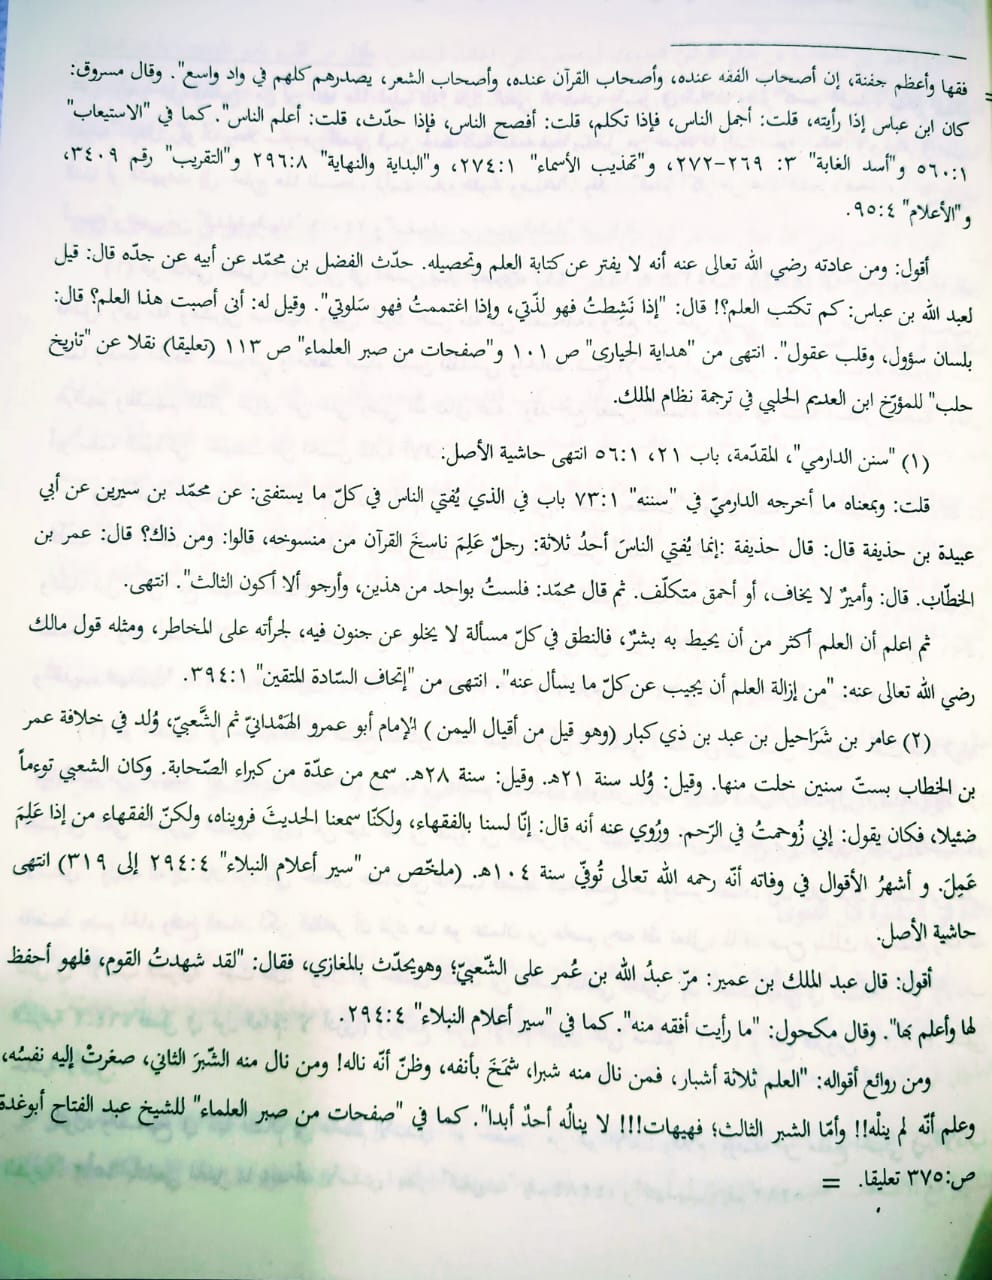 فقها وأعظم جفنة، إن أصحاب الفقه عنده، وأصحاب القرآن عنده، وأصحاب الشعر، يصدرهم كلهم في واد واسع". وقال مسروق:
كان ابن عباس إذا رأيته، قلت: أجمل الناس، فإذا تكلم، قلت: أفصح الناس، فإذا حدّث، قلت: أعلم الناس". كما في "الاستيعاب"
٥٦٠:١ و"أسد الغابة" ٣: ٢٦٩-٢٧٢، و"تهذيب الأسماء" ٢٧٤:١، و"البداية والنهاية" ٢٩٦:٨ و"التقريب" رقم ٣٤٠٩،
و"الأعلام" ٩٥:٤.
أقول: ومن عادته رضي الله تعالى عنه أنه لا يفتر عن كتابة العلم وتحصيله. حدّث الفضل بن محمّد عن أبيه عن جدّه قال: قيل
لعبد الله بن عباس: كم تكتب العلم؟! قال: "إذا نَشِطتُ فهو لذّتي، وإذا اغتممتُ فهو سَلوتي". وقيل له: أنى أصبت هذا العلم؟ قال:
بلسان سؤول، وقلب عقول". انتهى من "هداية الحيارى" ص ١٠١ و"صفحات من صبر العلماء" ص ١١٣ (تعليقا) نقلا عن "تاريخ
حلب" للمؤرّخ ابن العديم الحلبي في ترجمة نظام الملك.
(١) "سنن الدارمي"، المقدّمة، باب ٢١، ٥٦:١ انتهى حاشية الأصل:
قلت: وبمعناه ما أخرجه الدارميّ في "سننه" ٧٣:١ باب في الذي يُفتي الناس في كلّ ما يستفتى: عن محمّد بن سيرين عن أبي
عبيدة بن حذيفة قال: قال حذيفة :إنما يُفتي الناسَ أحدُ ثلاثة: رجلٌ عَلِمَ ناسخَ القرآن من منسوخه، قالوا: ومن ذاك؟ قال: عمر بن
الخطّاب. قال: وأميرٌ لا يخاف، أو أحمق متكلّف. ثم قال محمّد: فلستُ بواحد من هذين، وأرجو ألا أكون الثالث". انتهى.
ثم اعلم أن العلم أكثر من أن يحيط به بشرٌ، فالنطق في كلّ مسألة لا يخلو عن جنون فيه، لجرأته على المخاطر، ومثله قول مالك
رضي الله تعالى عنه: "من إزالة العلم أن يجيب عن كلّ ما يسأل عنه". انتهى من "إتحاف السّادة المتقين" ٣٩٤:١.
(٢) عامر بن شَرَاحيل بن عبد بن ذي كبار (وهو قيل من أقيال اليمن ) الإمام أبو عمرو الهَمْدانيّ ثم الشَّعبيّ، وُلد في خلافة عمر
بن الخطاب بستّ سنين خلت منها. وقيل: وُلد سنة ٢١هـ. وقيل: سنة ٢٨هـ. سمع من عدّة من كبراء الصّحابة. وكان الشعبي توءماً
ضئيلا، فكان يقول: إني زُوحمتُ في الرّحم. ورُوي عنه أنه قال: إنّا لسنا بالفقهاء، ولكنّا سمعنا الحديثَ فرويناه، ولكنّ الفقهاء من إذا عَلِمَ
عَمِلَ. و أشهرُ الأقوال في وفاته أنّه رحمه الله تعالى تُوفّي سنة ١٠٤هـ. (ملخّص من "سير أعلام النبلاء" ٢٩٤:٤ إلى ٣١٩) انتهى
حاشية الأصل.
أقول: قال عبد الملك بن عمير: مرّ عبدُ الله بن عُمر على الشّعبيّ؛ وهويحدّث بالمغازي، فقال: "لقد شهدتُ القوم، فلهو أحفظ
لها وأعلم بها". وقال مكحول: "ما رأيت أفقه منه". كما في "سير أعلام النبلاء" ٢٩٤:٤.
ومن روائع أقواله: "العلم ثلاثة أشبار، فمن نال منه شبرا، شَمَخَ بأنفه، وظنّ أنّه ناله! ومن نال منه الشّبرَ الثاني، صغرتْ إليه نفسُه،
وعلم أنّه لم ينلْه!! وأمّا الشبر الثالث؛ فهيهات!!! لا ينالُه أحدٌ أبدا". كما في "صفحات من صبر العلماء" للشيخ عبد الفتاح أبوغدة
ص:٣٧٥ تعليقا. =